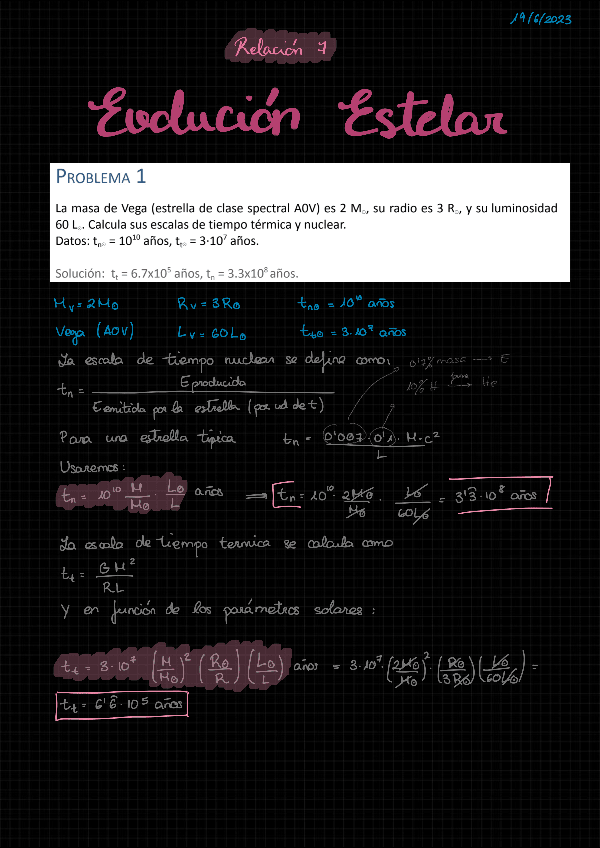 19/6/2023
Relación 7
Evolución Estelar
PROBLEMA 1
La masa de Vega (estrella de clase spectral A0V) es 2 M☉, su radio es 3 R☉, y su luminosidad
60 L☉. Calcula sus escalas de tiempo térmica y nuclear.
Datos: tn☉ = 10¹⁰ años, tt☉ = 3·10⁷ años.
Solución: tt = 6.7x10⁵ años, tn = 3.3x10⁸ años.
Mv = 2M☉ Rv = 3R☉ tn☉ = 10¹⁰ años
Vega (A0V) Lv = 60L☉ tt☉ = 3·10⁷ años
La escala de tiempo nuclear se define como: 0'7% masa → E
tn = E producida / E emitida por la estrella (por ud de t) 10% H → He
Para una estrella típica tn = 0'007 · 0'1 · M·c² / L
Usaremos:
tn = 10¹⁰ M/M☉ · L☉/L años ⟹ tn = 10¹⁰ · 2M☉/M☉ · L☉/60L☉ = 3'3̂ · 10⁸ años
La escala de tiempo termica se calcula como
tt = GM²/RL
Y en función de los parámetros solares:
tt = 3·10⁷ (M/M☉)² (R☉/R) (L☉/L) años = 3·10⁷ · (2M☉/M☉)² · (R☉/3R☉) (L☉/60L☉) =
tt = 6'6̂ · 10⁵ años